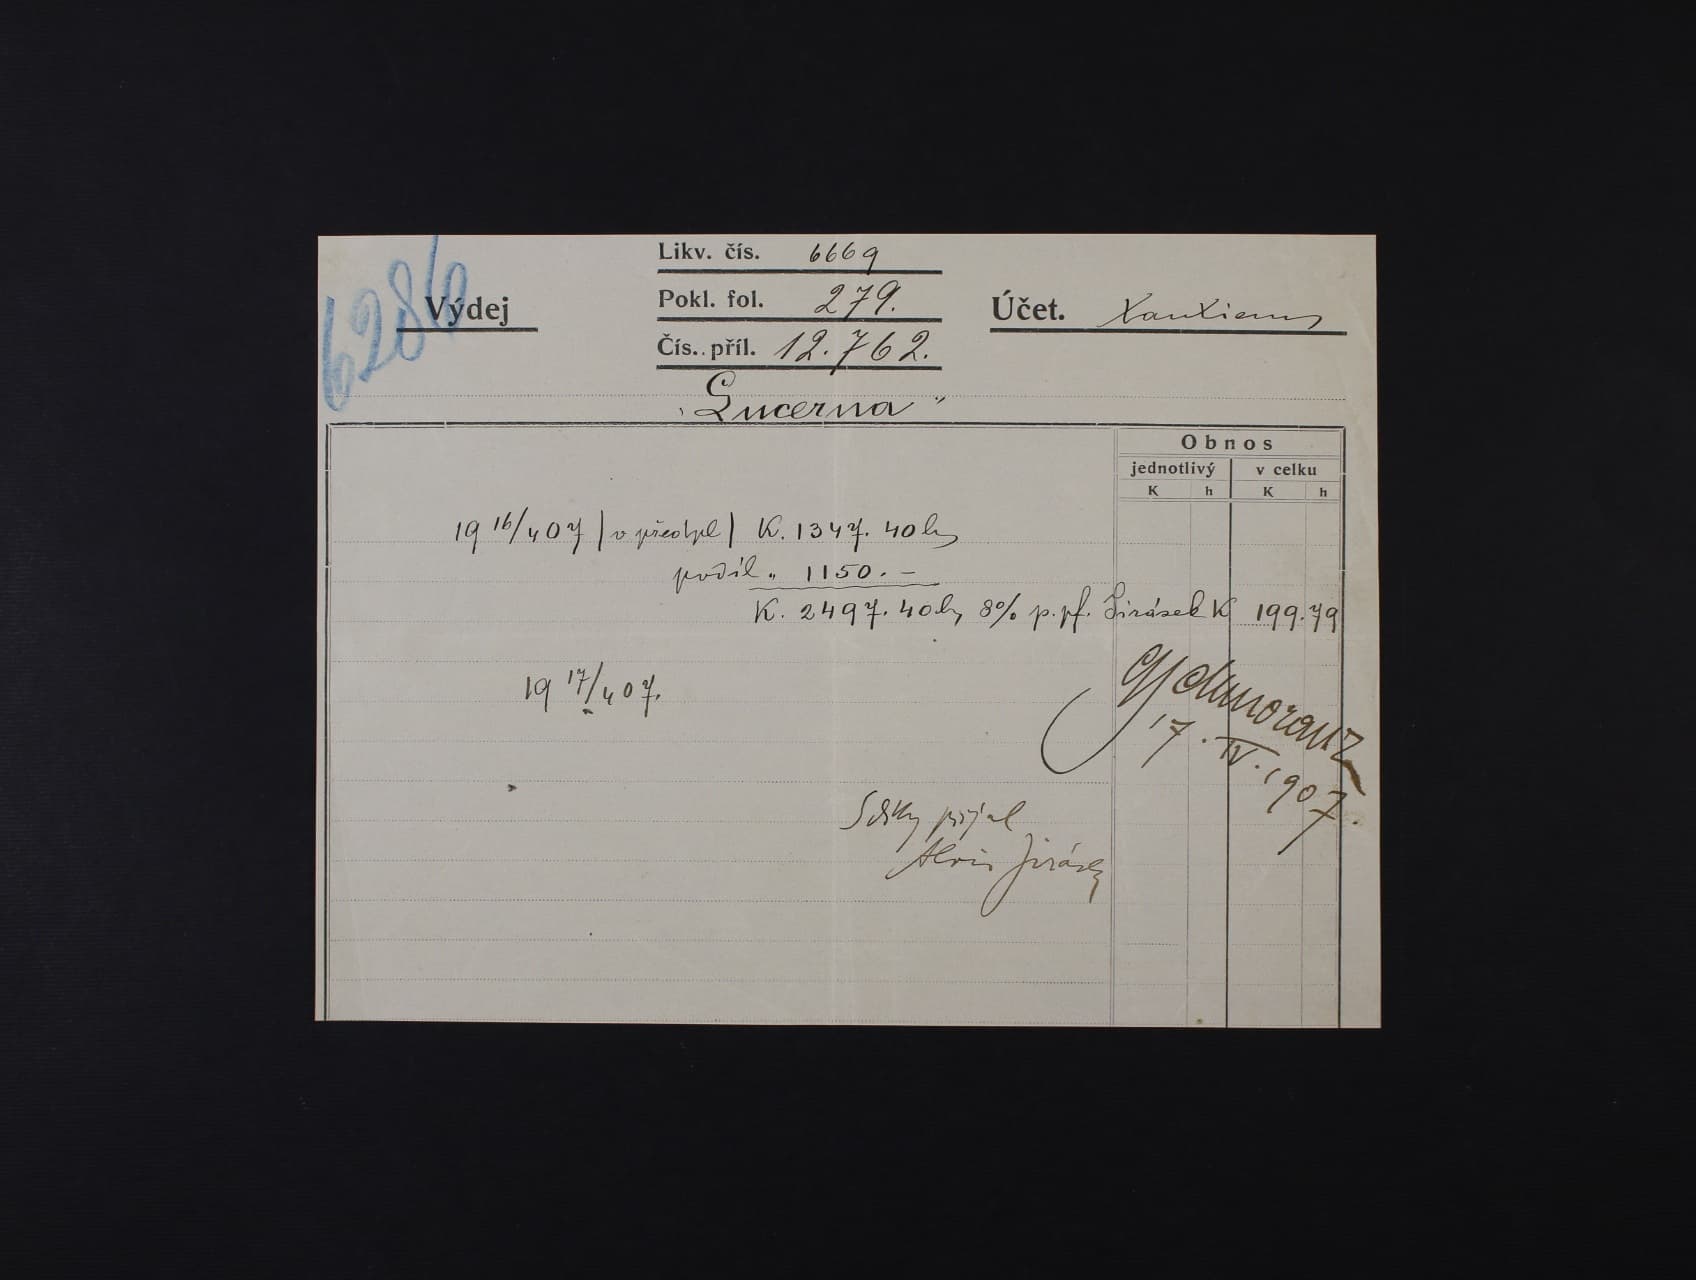 6286
Výdej
Likv. čís. 6669
Pokl. fol. 279.
Čís. příl. 12.762.
Účet. Tantiem
„Lucerna"
Obnos
jednotlivý v celku
K h K h
19 16/4 07 | v předpl | K. 1347. 40 h
podíl „ 1150. –
K. 2497. 40 h, 8% p. pf. Jirásek K 199.79
19 17/4 07.
GSchmoranz
17. IV. 1907.
Díky přijal
Alois Jirásek